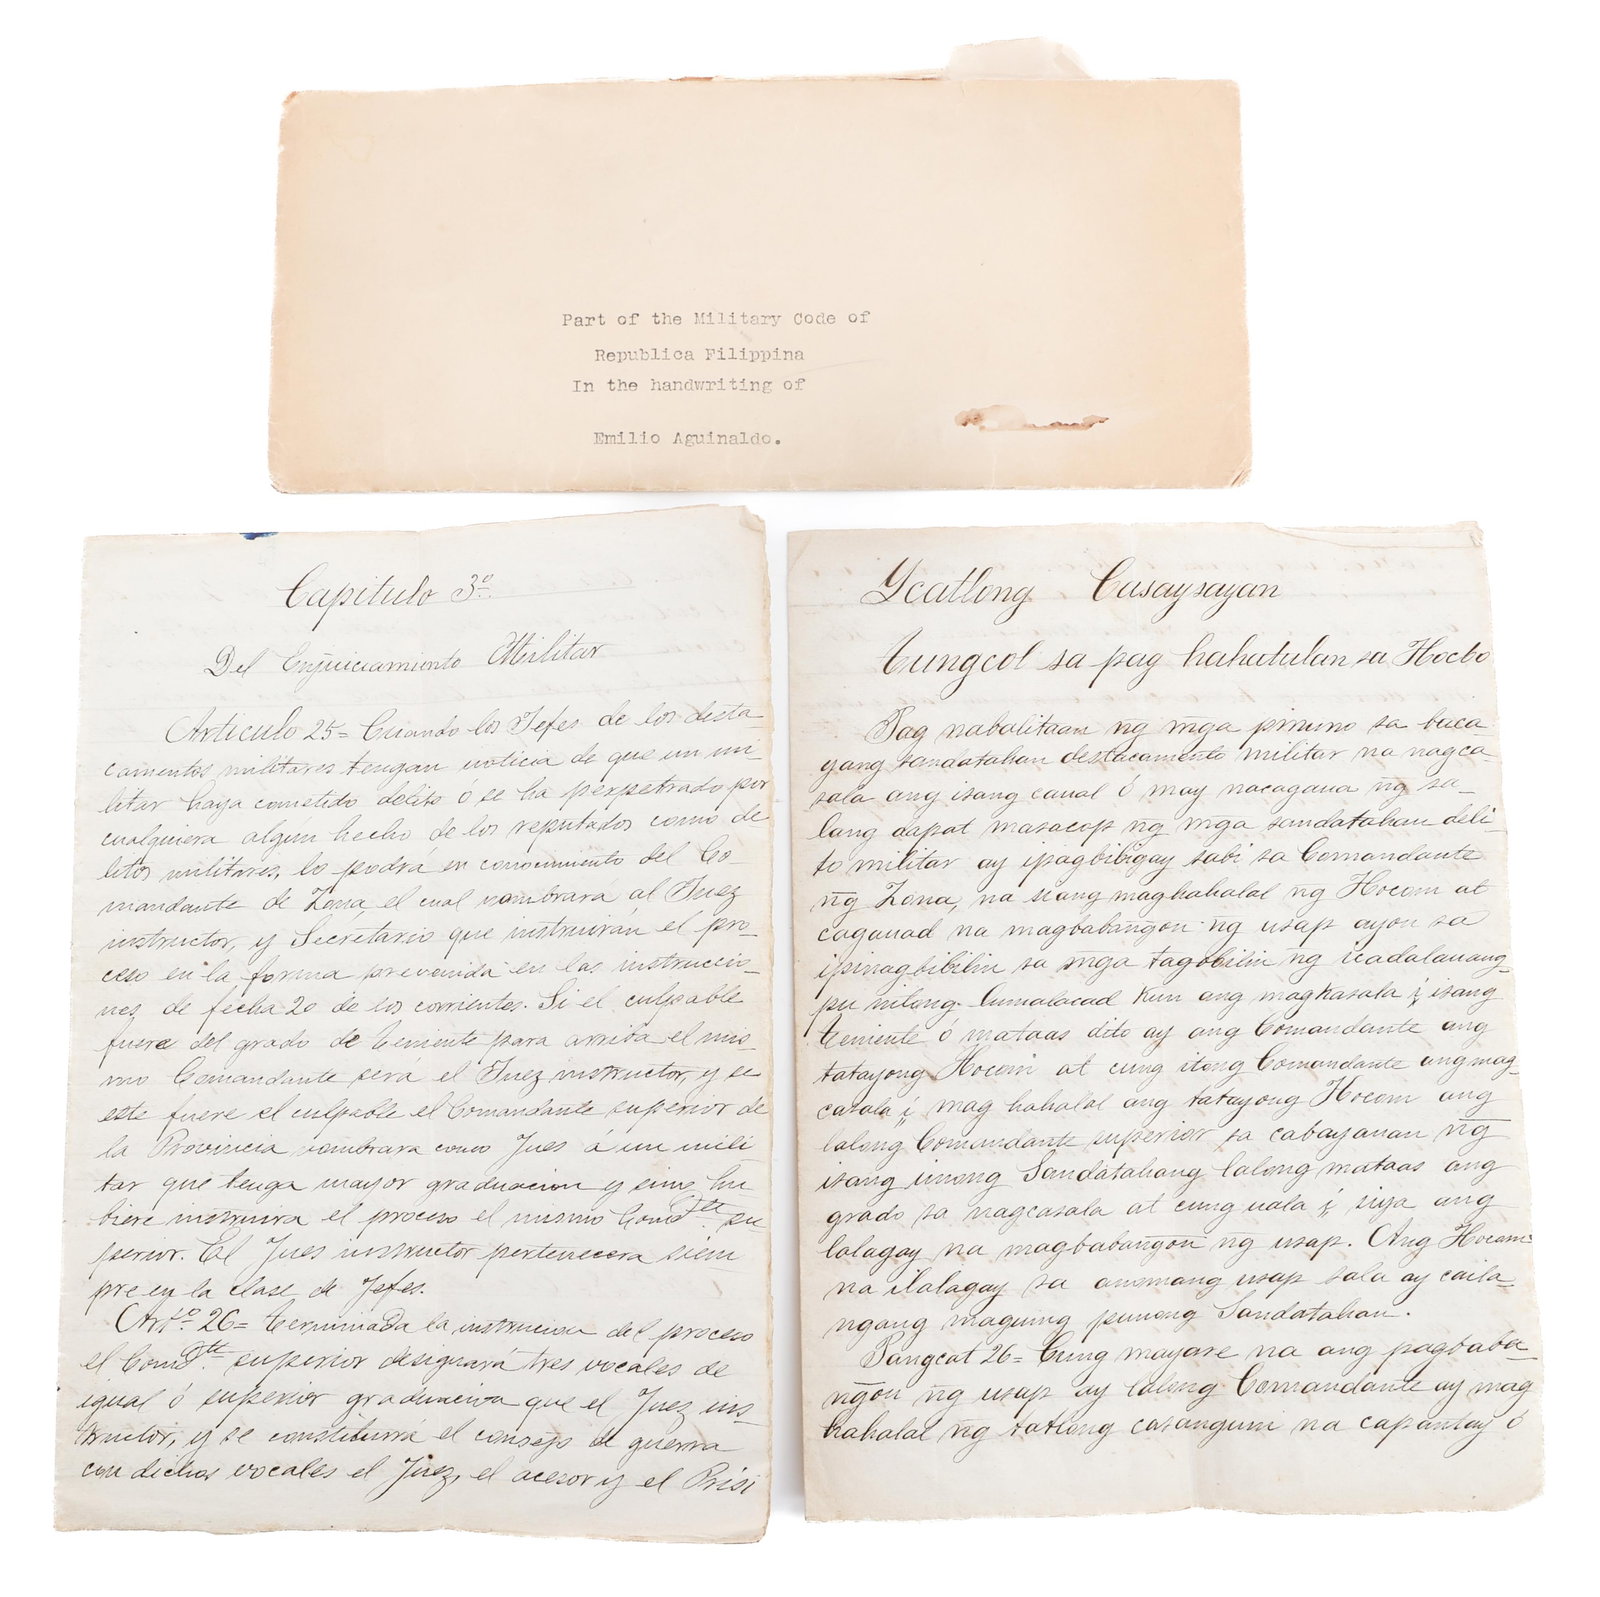 Part of the Military Code of
Republica Filippina
In the handwriting of
Emilio Aguinaldo.
Capitulo 3º
Del Enjuiciamiento Militar
Articulo 25= Cuando los Jefes de los desta
camentos militares tengan noticia de que un mi-
litar haya cometido delito o se ha perpetrado por
cualquiera algun hecho de los reputados como de
litos militares, lo podrá en conocimiento del Co-
mandante de Zona, el cual nombrara al Juez
instructor, y Secretario que instruirán el pro-
ceso en la forma prevenida en las instruccio-
nes de fecha 20 de los corrientes. Si el culpable
fuere del grado de teniente para arriba el mis-
mo Comandante sera el Juez instructor, y se
este fuere el culpable el Comandante superior de
la Provincia nombrara como Jues á un mili
tar que tenga mayor graduacion y sino hu
biere instruira el proceso el mismo Comdte. su
perior. El Jues instructor pertenecera siem
pre en la clase de Jefes.
Arto. 26= Terminada la instrucion del proceso
el Comdte. superior designará tres vocales de
igual ó superior graduacion que el Juez ins-
tructor, y se constituirá el consejo de guerra
con dichos vocales el Juez, el acesor y el Prisi
Ycatlong Casaysayan
Tungcol sa pag hahatulan sa Hocbo
Pag nabalitaan ng̃ mg̃a pinuno sa baca
yang sandatahan destacamento militar na nagca-
sala ang isang caual ó may nacagaua ng̃ sa-
lang dapat masacop ng̃ mg̃a sandatahan deli-
to militar ay ipagbibigay sabi sa Comandante
ng̃ Zona, na siang maghahalal ng̃ Hocom at
cagauad na magbabang̃on ng̃ usap ayon sa
ipinagbibilin sa mg̃a tagobilin ng̃ icadalauang-
pu nitong lumalacad kun ang magkasala i, isang
teniente ó mataas dito ay ang Comandante ang
tatayong Hocom at cung itong Comandante ang mag-
casala i, mag hahalal ang tatayong Hocom ang
lalong Comandante superior sa cabayanan ng̃
isang unong Sandatahang lalong mataas ang
grado sa nagcasala at cung uala i, siya ang
lalagay na magbabang̃on ng̃ usap. Ang Hocom
na ilalagay sa anomang usap sala ay caila-
ngang maguing punong Sandatahan.
Pangcat 26= Cung mayare na ang pagbaba-
ng̃on ng̃ usap ay lalong Comandante ay mag
hahalal ng̃ tatlong casanguni na capantay ó